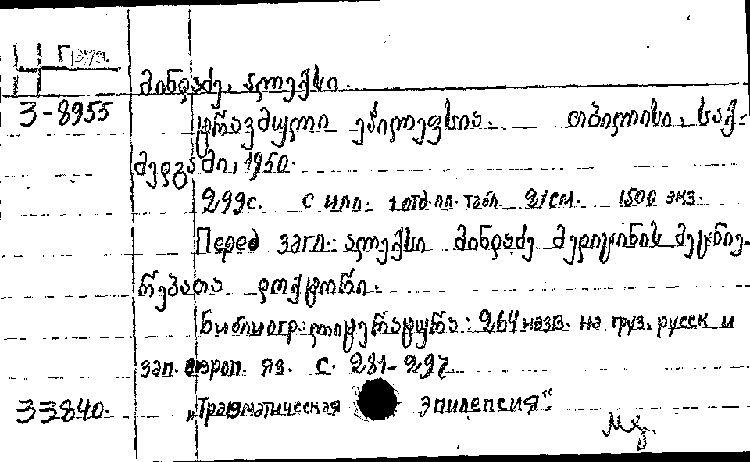 Н Груз.
მინდაძე, ალექსი.
3-8955
ტრავმული ეპილეფსია. თბილისი, საქ-
მედგამი, 1950.
299с. с илл. 1 отд. лл. табл. 21см. 1500 экз.
Перед загл.: ალექსი მინდაძე მედიცინის მეცნიე-
რებათა დოქტორი.
Библиогр. ლიტერატურა: 264 назв. на груз. русск и
зап. европ. яз. с. 281-297
33840. „Травматическая эпилепсия".